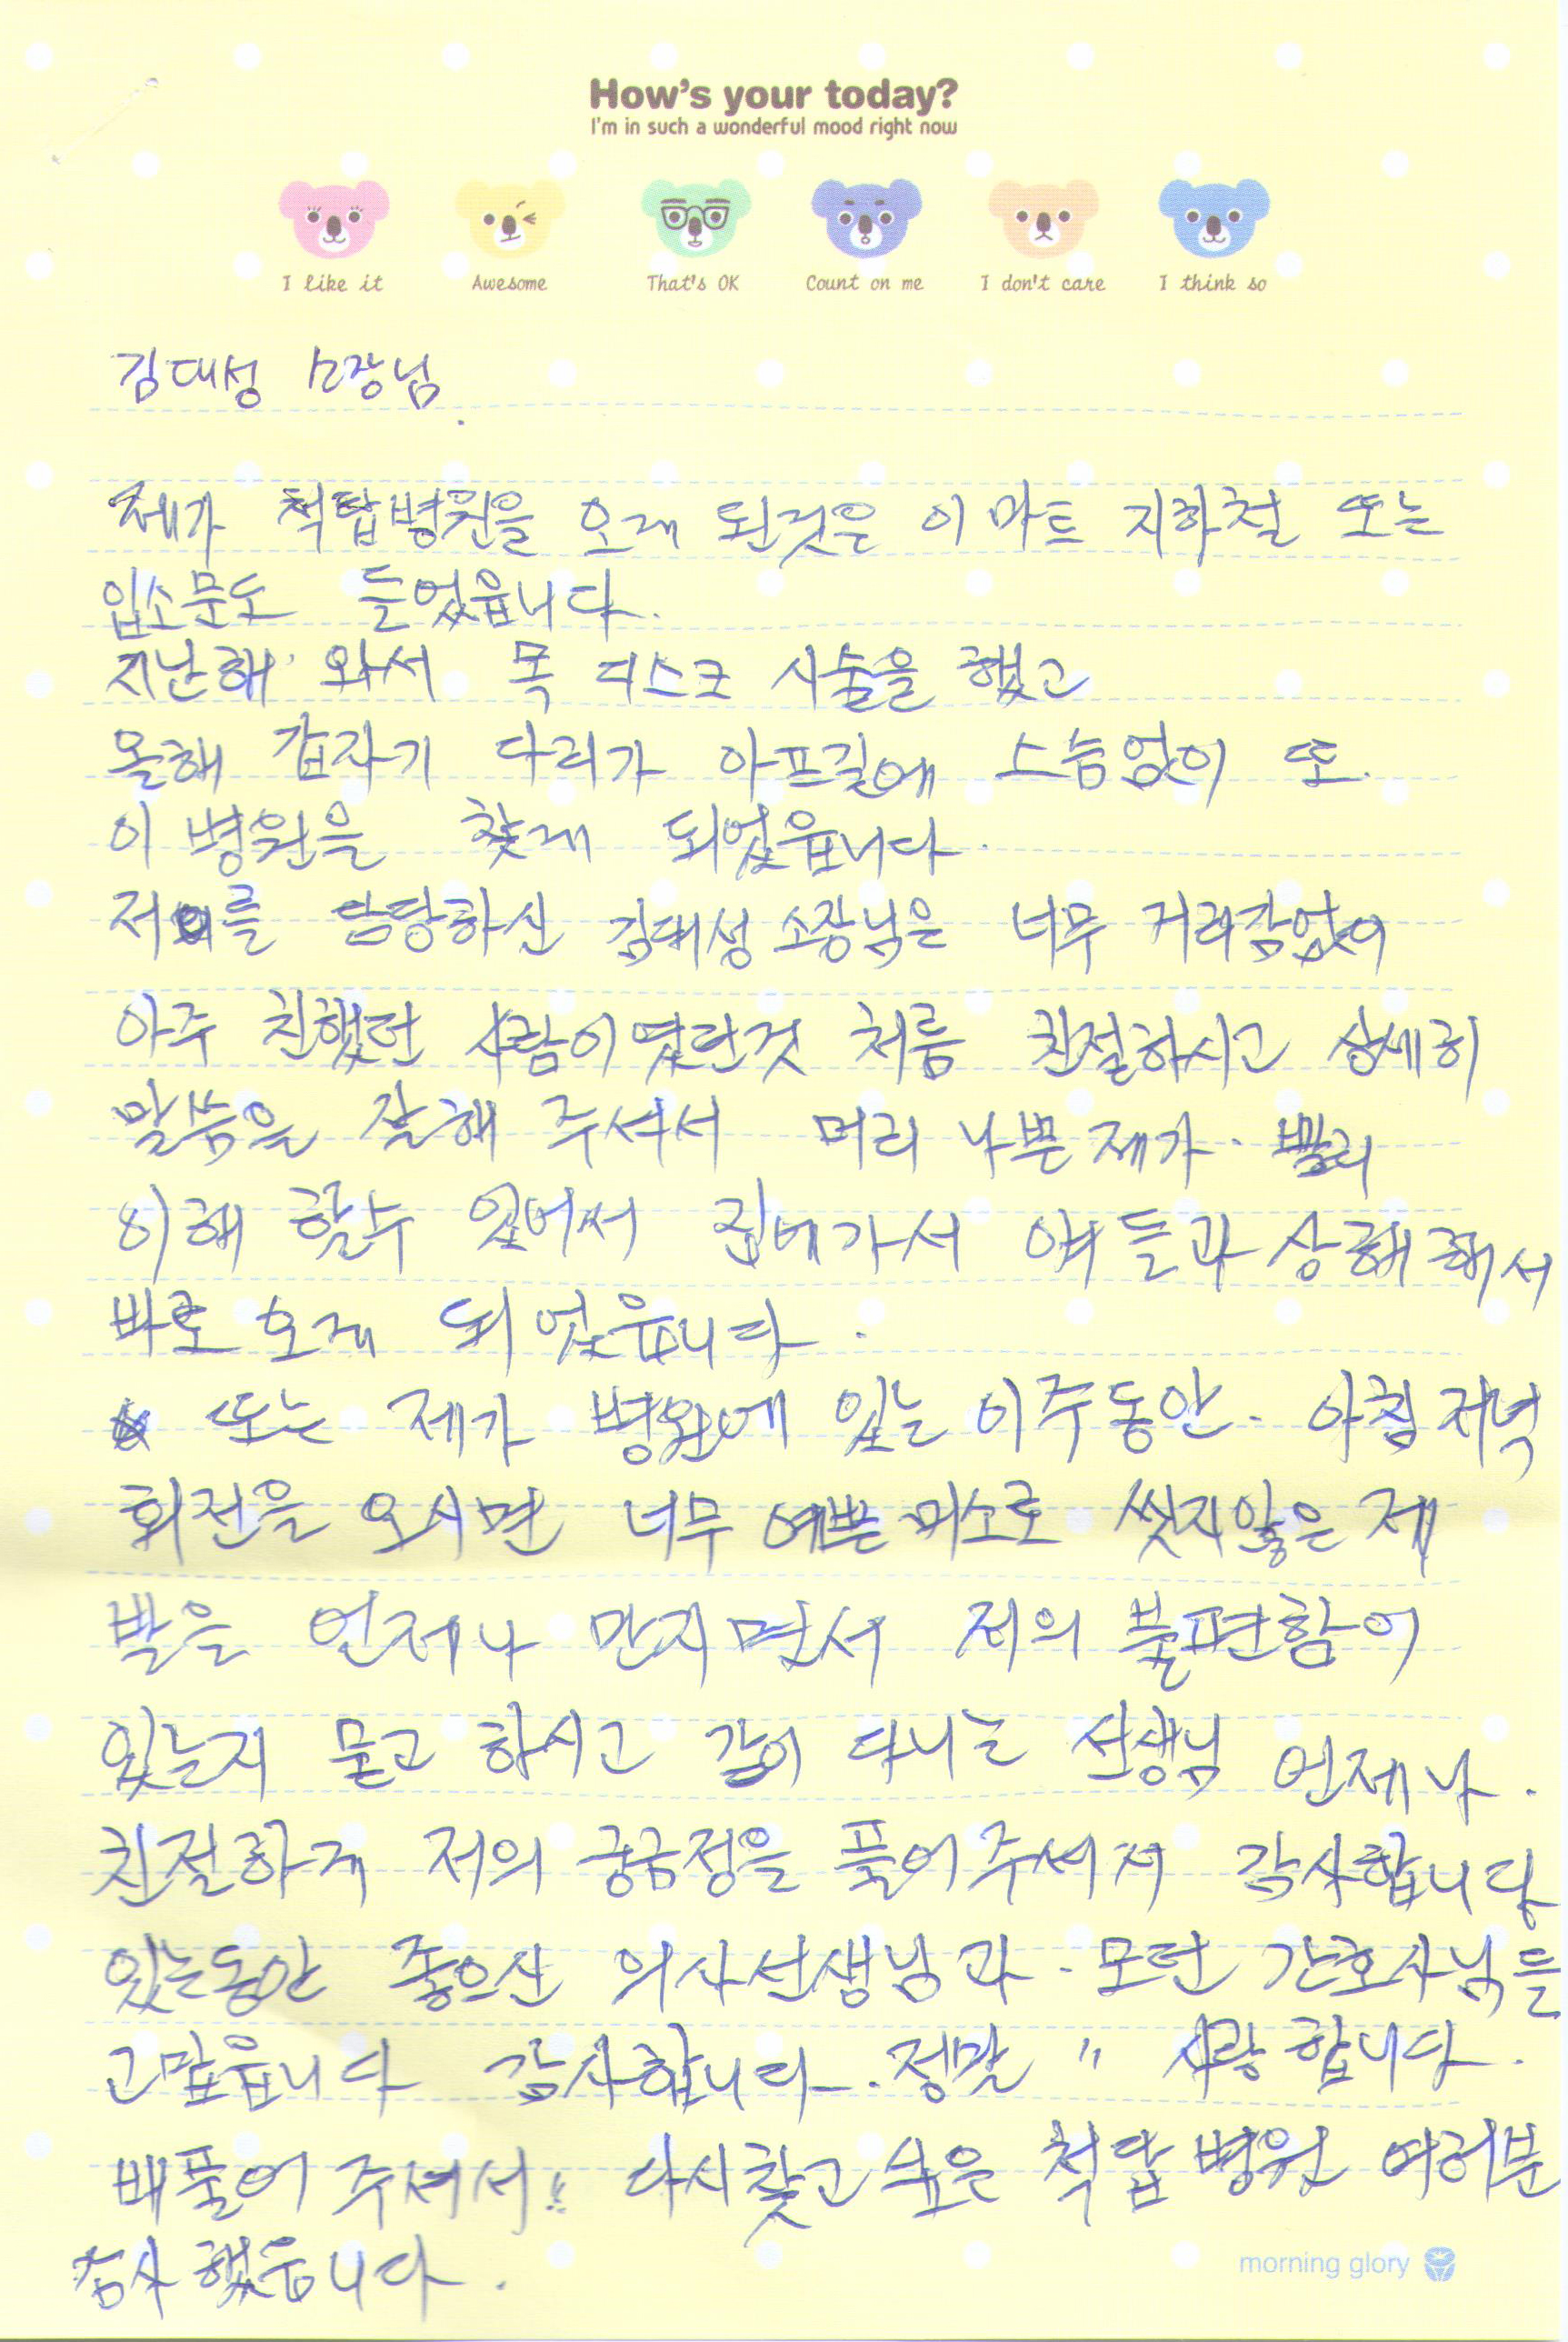 How's your today?
I'm in such a wonderful mood right now
I like it Awesome That's OK Count on me I don't care I think so
김대성 소장님.
제가 척탑병원을 오게 된것은 이마트 지하철 또는
입소문도 들었읍니다.
지난해 와서 목 디스크 시술을 했고
올해 갑자기 다리가 아프길에 스슴없이 또.
이 병원을 찾게 되었읍니다.
저를 담당하신 김대성 소장님은 너무 거리감없이
아주 친했던 사람이였던것 처름 친절하시고 상세히
말씀을 잘해 주셔서 머리 나쁜 제가. 빨리
이해 할수 있어서 집에가서 얘들과 상해해서
바로 오게 되었읍니다.
또는 제가 병원에 있는 이주동안. 아침 저녁
회전을 오시면 너무 예쁜 미소로 씻지않은 제
발을 언제나 만지면서 저의 불편함이
있는지 묻고 하시고 같이 다니는 선생님 언제나.
친절하게 저의 궁금정을 풀어주셔서 감사합니다
있는동안 좋으신 의사선생님과. 모던 간호사님들
고맙읍니다 감사합니다. 정말 " 사랑합니다.
배풀어 주셔서!! 다시찾고싶은 척탑병원 여러분
감사했읍니다.
morning glory